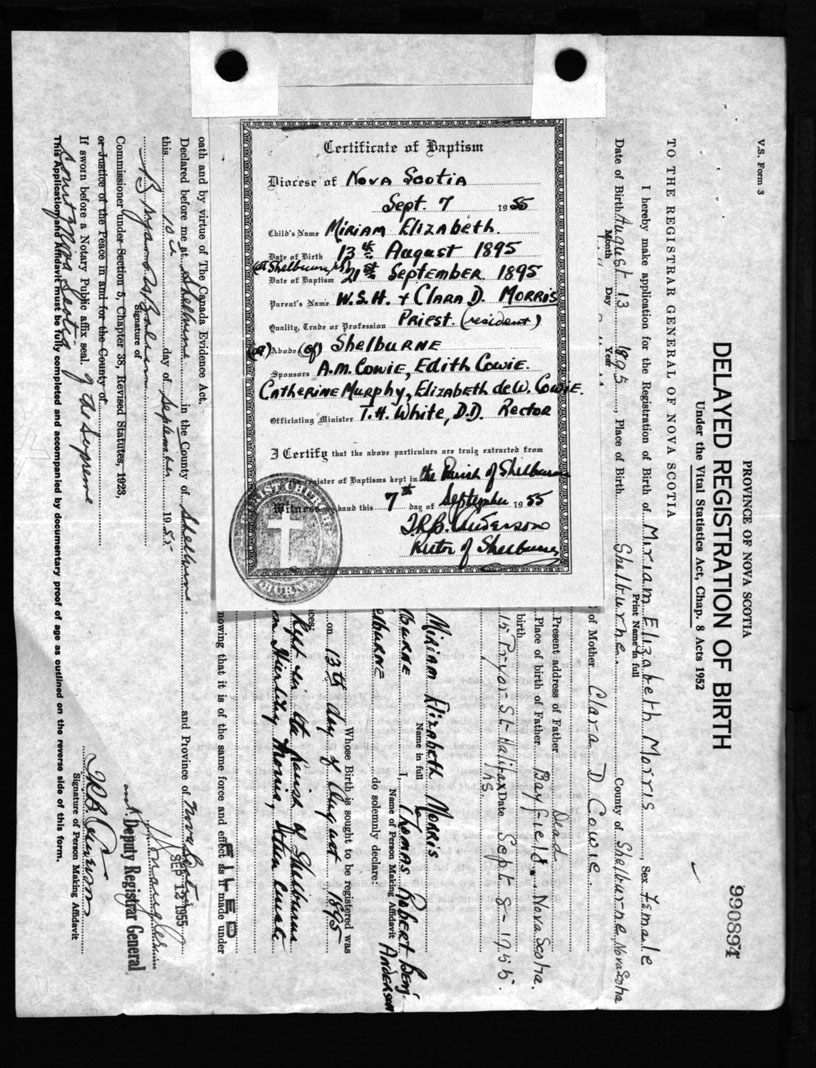 Certificate of Baptism
Diocese of Nova Scotia
Sept. 7 1955
Child's Name Miriam Elizabeth.
Date of Birth 13th August 1895
(at Shelburne, NS)
Date of Baptism 21st September 1895
Parent's Name W.S.H. + Clara D. Morris
Quality, Trade or Profession Priest. (resident)
Abode (of) Shelburne
Sponsors A.M. Cowie, Edith Cowie.
Catherine Murphy, Elizabeth deW. Cowie.
Officiating Minister T.H. White, D.D. Rector
I Certify that the above particulars are truly extracted from
Register of Baptisms kept in the Parish of Shelburne
Witness my hand this 7th day of September 1955
T.R.B. Anderson
Rector of Shelburne
V.S. Form 3
990894
PROVINCE OF NOVA SCOTIA
DELAYED REGISTRATION OF BIRTH
Under the Vital Statistics Act, Chap. 8 Acts 1952
TO THE REGISTRAR GENERAL OF NOVA SCOTIA
I hereby make application for the Registration of Birth of Miriam Elizabeth Morris, Sex female
Print Name in full
Date of Birth August 13 1895, Place of Birth Shelburne. County of Shelburne, Nova Scotia
Month Day Year
of Mother Clara D Cowie
Present address of Father Dead
Place of birth of Father Bayfield. Nova Scotia.
birth
15 Pryor St Halifax Date Sept 8-1955.
N.S.
Miriam Elizabeth Morris
Name in full
I, Thomas Robert Benj Anderson
Name of Person Making Affidavit
do solemnly declare:
Whose Birth is sought to be registered was
on 13th day of August 1895
kept in the Parish of Shelburne
nowing that it is of the same force and effect as if made under
FILED
oath and by virtue of The Canada Evidence Act.
Declared before me at Shelburne in the County of Shelburne and Province of Nova Scotia
this 10th day of September 1955
SEP 12 1955
Deputy Registrar General
Signature of
Commissioner under Section 5, Chapter 38, Revised Statutes, 1923,
or Justice of the Peace in and for the County of
If sworn before a Notary Public affix seal. of the Supreme
Court Nova Scotia
TRB Anderson
Signature of Person Making Affidavit
This Application and Affidavit must be fully completed and accompanied by documentary proof of age as outlined on the reverse side of this form.